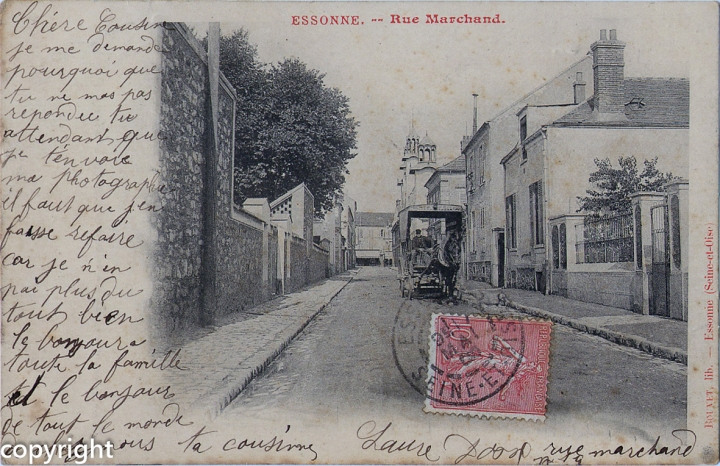 ESSONNE. -- Rue Marchand.
Chère Cousine
je me demande
pourquoi que
tu ne mas pas
repondeu tu
attendant que
je t'envoie
ma photographie
il faut que j'en
fasse refaire
car je n'en
pas plus du
tout bien
le bonjours a
toute la famille
et le bonjour
de tout le monde
vous ta cousinne Laure rue marchand
n 19
copyright
ESSONNE
SEINE-ET
10
Essonne (Seine-et-Oise)